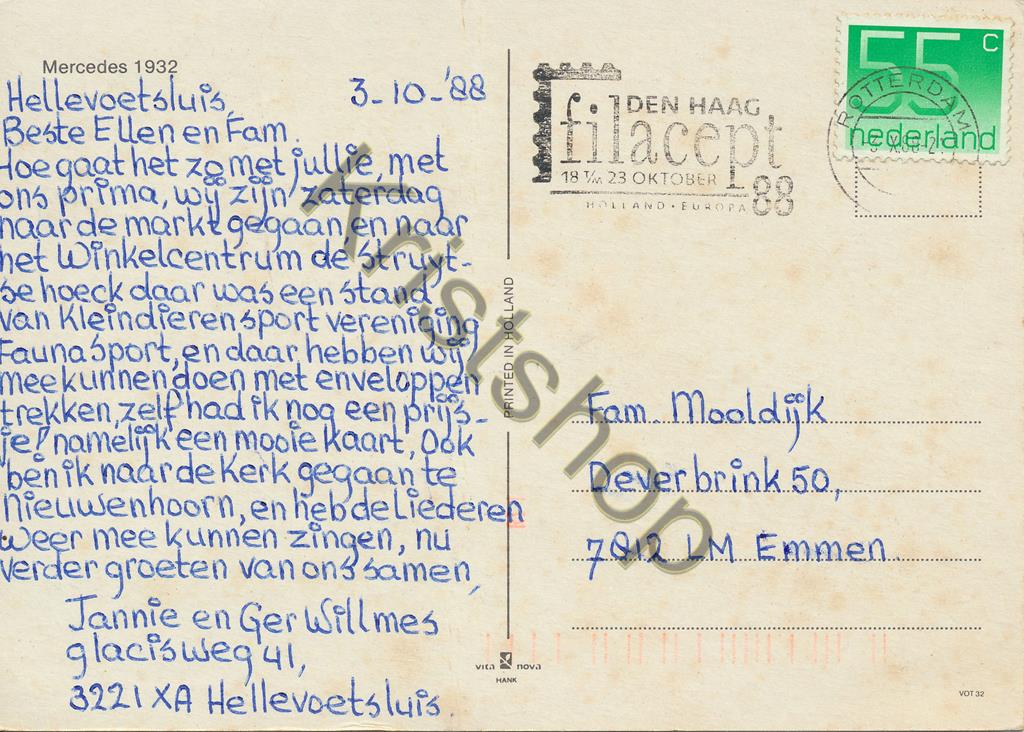 Mercedes 1932
Hellevoetsluis, 3-10-'88
Beste Ellen en Fam.
Hoe gaat het zo met jullie, met
ons prima, wij zijn zaterdag
naar de markt gegaan, en naar
het Winkelcentrum de Struyt-
se hoeck daar was een stand
van Kleindierensport vereniging
Fauna Sport, en daar hebben wij
mee kunnen doen met enveloppen
trekken, zelf had ik nog een prijs-
je! namelijk een mooie kaart, Ook
ben ik naar de Kerk gegaan te
Nieuwenhoorn, en heb de Liederen
weer mee kunnen zingen, nu
verder groeten van ons samen,
Jannie en Ger Willmes
glacisweg 41,
3221 XA Hellevoetsluis.
PRINTED IN HOLLAND
vita nova
HANK
DEN HAAG
filacept
18 T/m 23 OKTOBER
88
HOLLAND · EUROPA
55 C
nederland
ROTTERDAM
Fam. Mooldijk
Deverbrink 50,
7812 LM Emmen.
VOT 32
Kristshop